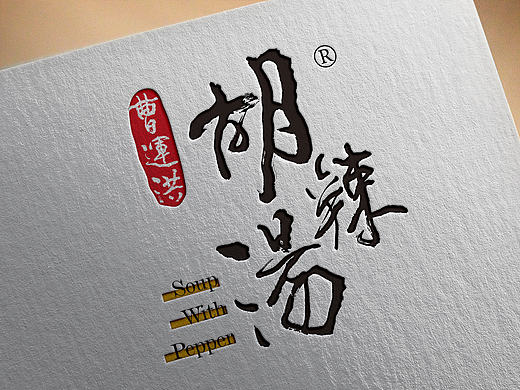 胡辣湯®
曹運洪
Soup
With
Pepper